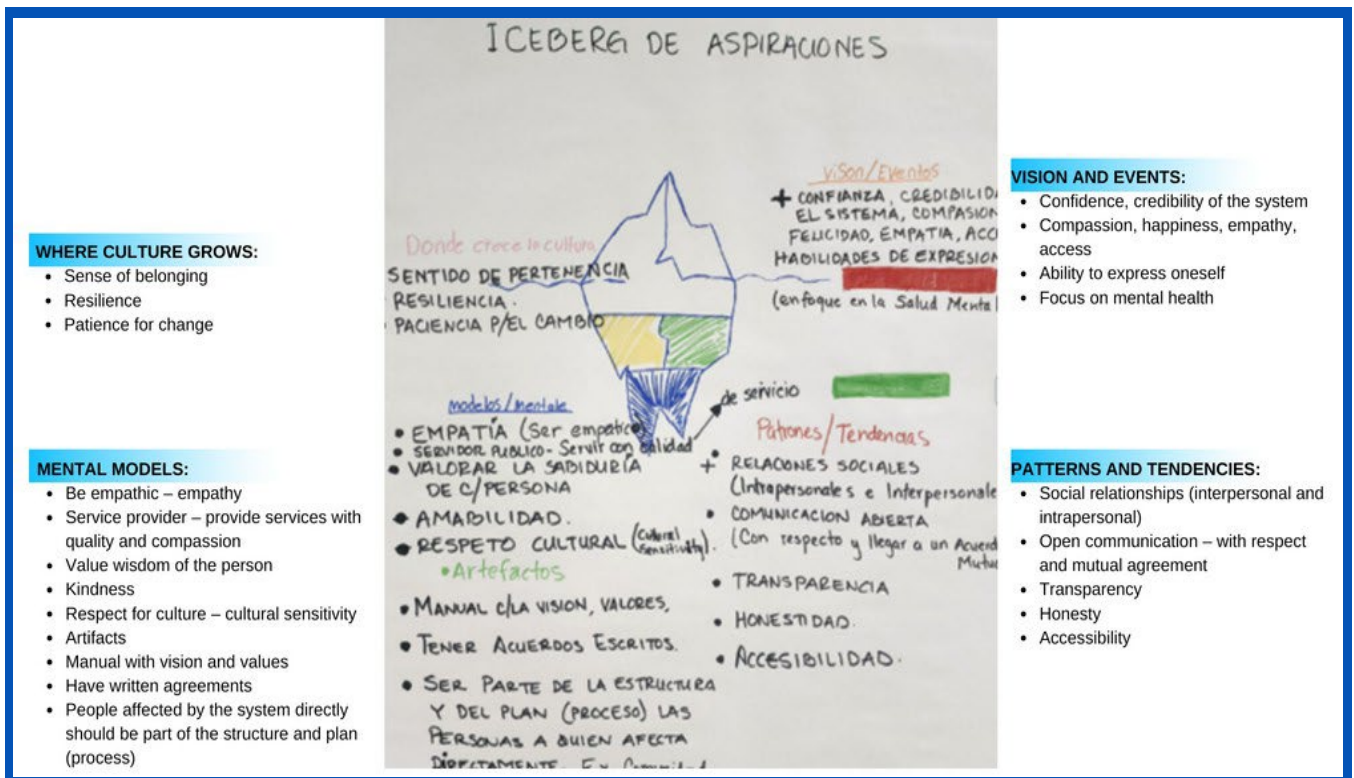 ICEBERG DE ASPIRACIONES
WHERE CULTURE GROWS:
• Sense of belonging
• Resilience
• Patience for change
MENTAL MODELS:
• Be empathic – empathy
• Service provider – provide services with
quality and compassion
• Value wisdom of the person
• Kindness
• Respect for culture – cultural sensitivity
• Artifacts
• Manual with vision and values
• Have written agreements
• People affected by the system directly
should be part of the structure and plan
(process)
Donde crece la cultura
SENTIDO DE PERTENENCIA
RESILIENCIA.
PACIENCIA P/EL CAMBIO
modelos/mentale
• EMPATÍA (Ser empatico)
• SERVIDOR PUBLICO - Servir con calidad
• VALORAR LA SABIDURÍA
DE C/PERSONA
• AMABILIDAD.
• RESPETO CULTURAL (Cultural
Sensitivity).
• Artefactos
• MANUAL C/LA VISION, VALORES,
• TENER ACUERDOS ESCRITOS.
• SER PARTE DE LA ESTRUCTURA
Y DEL PLAN (PROCESO) LAS
PERSONAS A QUIEN AFECTA
DIRECTAMENTE.
Vison/Eventos
+ CONFIANZA, CREDIBILIDA
EL SISTEMA, COMPASION
FELICIDAD, EMPATIA, ACC
HABILIDADES DE EXPRESION
(enfoque en la Salud Mental
de servicio
Patrones/Tendencias
+ RELACIONES SOCIALES
(Intrapersonales e Interpersonale
• COMUNICACION ABIERTA
(Con respecto y llegar a un Acuerd
Mutu
• TRANSPARENCIA
• HONESTIDAD.
• ACCESIBILIDAD.
VISION AND EVENTS:
• Confidence, credibility of the system
• Compassion, happiness, empathy,
access
• Ability to express oneself
• Focus on mental health
PATTERNS AND TENDENCIES:
• Social relationships (interpersonal and
intrapersonal)
• Open communication – with respect
and mutual agreement
• Transparency
• Honesty
• Accessibility